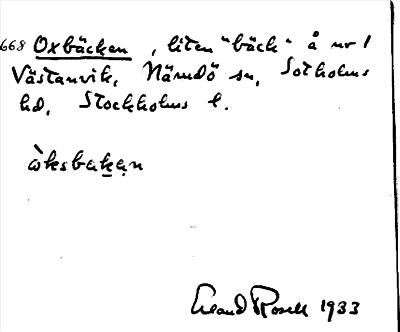 668 Oxbäcken, liten "bäck" å nr 1
Västanvik, Nämdö sn, Sotholms
hd, Stockholms l.
òksbakan
Erland Rosell 1933